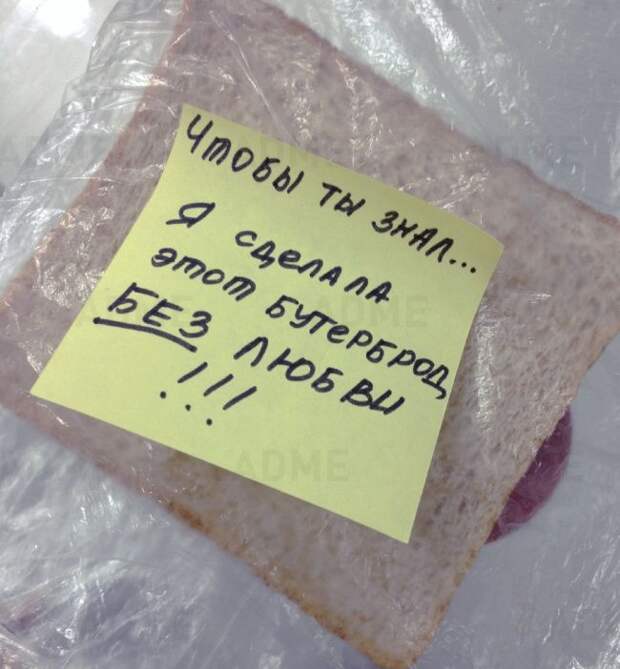 Чтобы ты знал...
Я сделала
этот бутерброд
БЕЗ любви
!!!
ADME
ADME
ADME